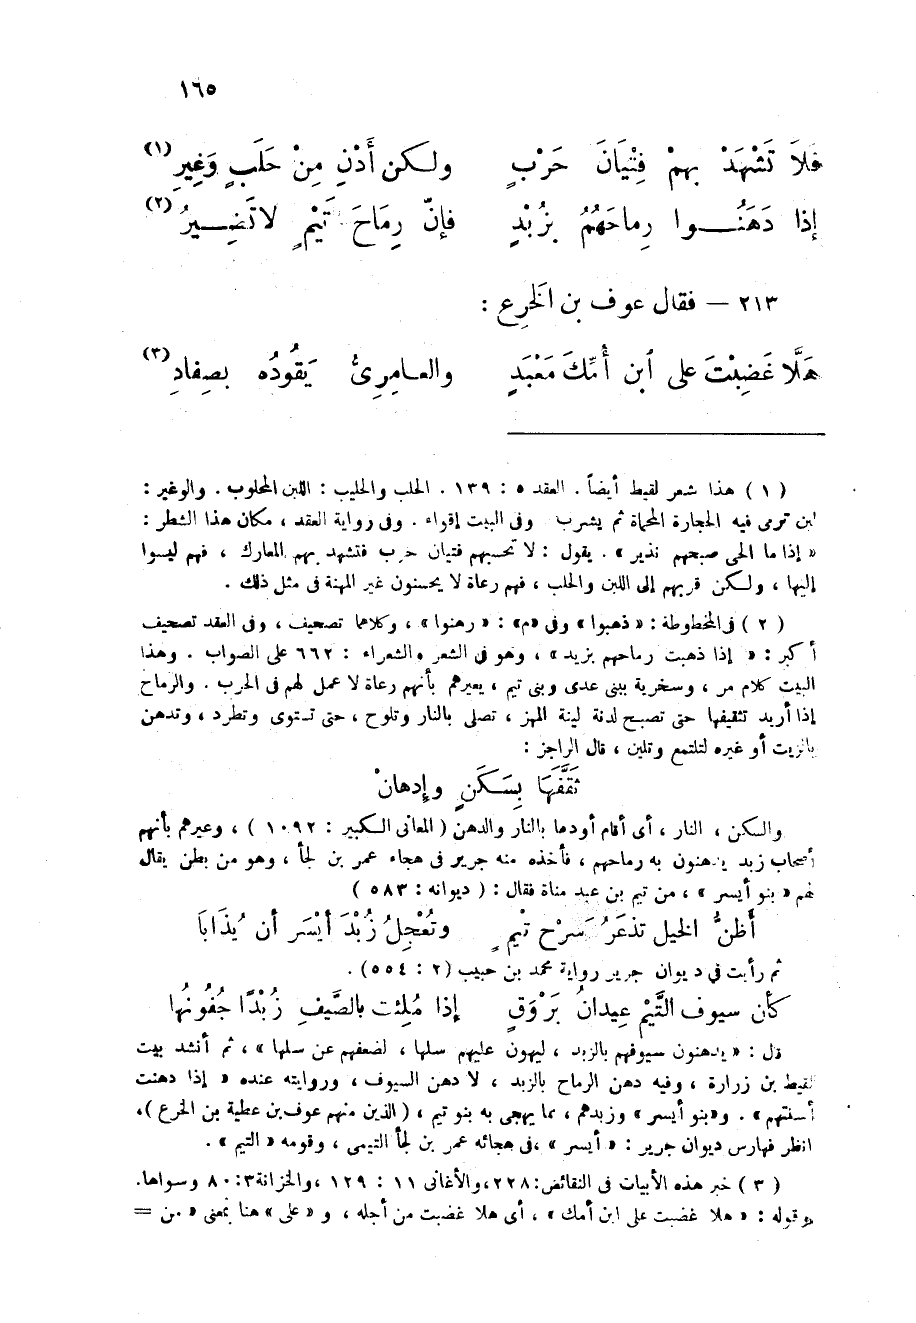 ١٦٥
فَلاَ تَشْهَدْ بهمْ فِتْيَانَ حَرْبٍ ولـكن أَدْنِ مِنْ حَلَبٍ وَغِيرِ (١)
إذا دَهَنُـــوا رِماحَهُمُ بزُبْدٍ فإنّ رِمَاحَ تَيْمٍ لا تَضِـيرُ (٢)
٢١٣ — فقال عوف بن الخَرِع :
هَلَّا غَضِبْتَ على ٱبن أُمِّكَ مَعْبَدٍ والعـامِرِىُّ يَقُودُه بصِفادِ (٣)
( ١ ) هذا شعر لقيط أيضاً . العقد ٥ : ١٣٩ . الحلب والحليب : اللبن المحلوب . والوغير :
لبن ترمى فيه الحجارة المحماة ثم يشرب وفى البيت إقواء . وفى رواية العقد ، مكان هذا الشطر :
« إذا ما الحى صبحهم نذير » . يقول : لا تحسبهم فتيان حرب فتشهد بهم المعارك ، فهم ليسوا
إليها ، ولـكن قربهم إلى اللبن والحلب ، فهم رعاة لا يحسنون غير المهنة فى مثل ذلك .
( ٢ ) فى المخطوطة : « ذهبوا » وفى «م» : « رهنوا » ، وكلاهما تصحيف ، وفى العقد تصحيف
أكبر : « إذا ذهبت رماحهم بزيد » ، وهو فى الشعر والشعراء : ٦٦٢ على الصواب . وهذا
البيت كلام مر ، وسخرية ببنى عدى وبنى تيم ، يعيرهم بأنهم رعاة لا عمل لهم فى الحرب . والرماح
إذا أريد تثقيفها حتى تصبح لدنة لينة المهز ، تصلى بالنار وتلوح ، حتى تستوى وتطرد ، وتدهن
بالزيت أو غيره لتلتمع وتلين ، قال الراجز :
ثَقَّفَهَا بِسَكَنٍ وإدهانْ
والسكن ، النار ، أى أقام أودها بالنار والدهن ( المعانى الـكبير : ١٠٩٢ ) ، وعيرهم بأنهم
أصحاب زبد يدهنون به رماحهم ، فأخذه منه جرير فى هجاء عمر بن لجأ ، وهو من بطن يقال
لهم « بنو أيسر » ، من تيم بن عبد مناة فقال : ( ديوانه : ٥٨٣ )
أَظنُّ الخيل تذعَرُ سَرْح تيْمٍ وتُعْجِلُ زُبْدَ أيْسَر أن يُذَابَا
ثم رأيت في ديوان جرير رواية محمد بن حبيب (٢ : ٥٥٤) .
كأن سيوف التَّيْمِ عِيدانُ بَرْوَقٍ إذا مُلِئت بالصَّيفِ زُبْدًا جُفُونُها
قال : « يدهنون سيوفهم بالزبد ، ليهون عليهم سلها ، لضعفهم عن سلها » ، ثم أنشد بيت
لقيط بن زرارة ، وفيه دهن الرماح بالزبد ، لا دهن السيوف ، وروايته عنده « إذا دهنت
أسنتهم » . و«بنو أيسر» وزبدهم ، مما يهجى به بنو تيم ، ( الذين منهم عوف بن عطية بن الخرع ) ،
انظر فهارس ديوان جرير : « أيسر » ، فى هجائه عمر بن لجأ التيمى ، وقومه « التيم » .
( ٣ ) خبر هذه الأبيات فى النقائض : ٢٢٨ ، والأغانى ١١ : ١٢٩ ، والخزانة ٣ : ٨٠ وسواها.
وقوله : « هلا غضبت على ابن أمك » ، أى هلا غضبت من أجله ، و « على » هنا بمعنى « من =